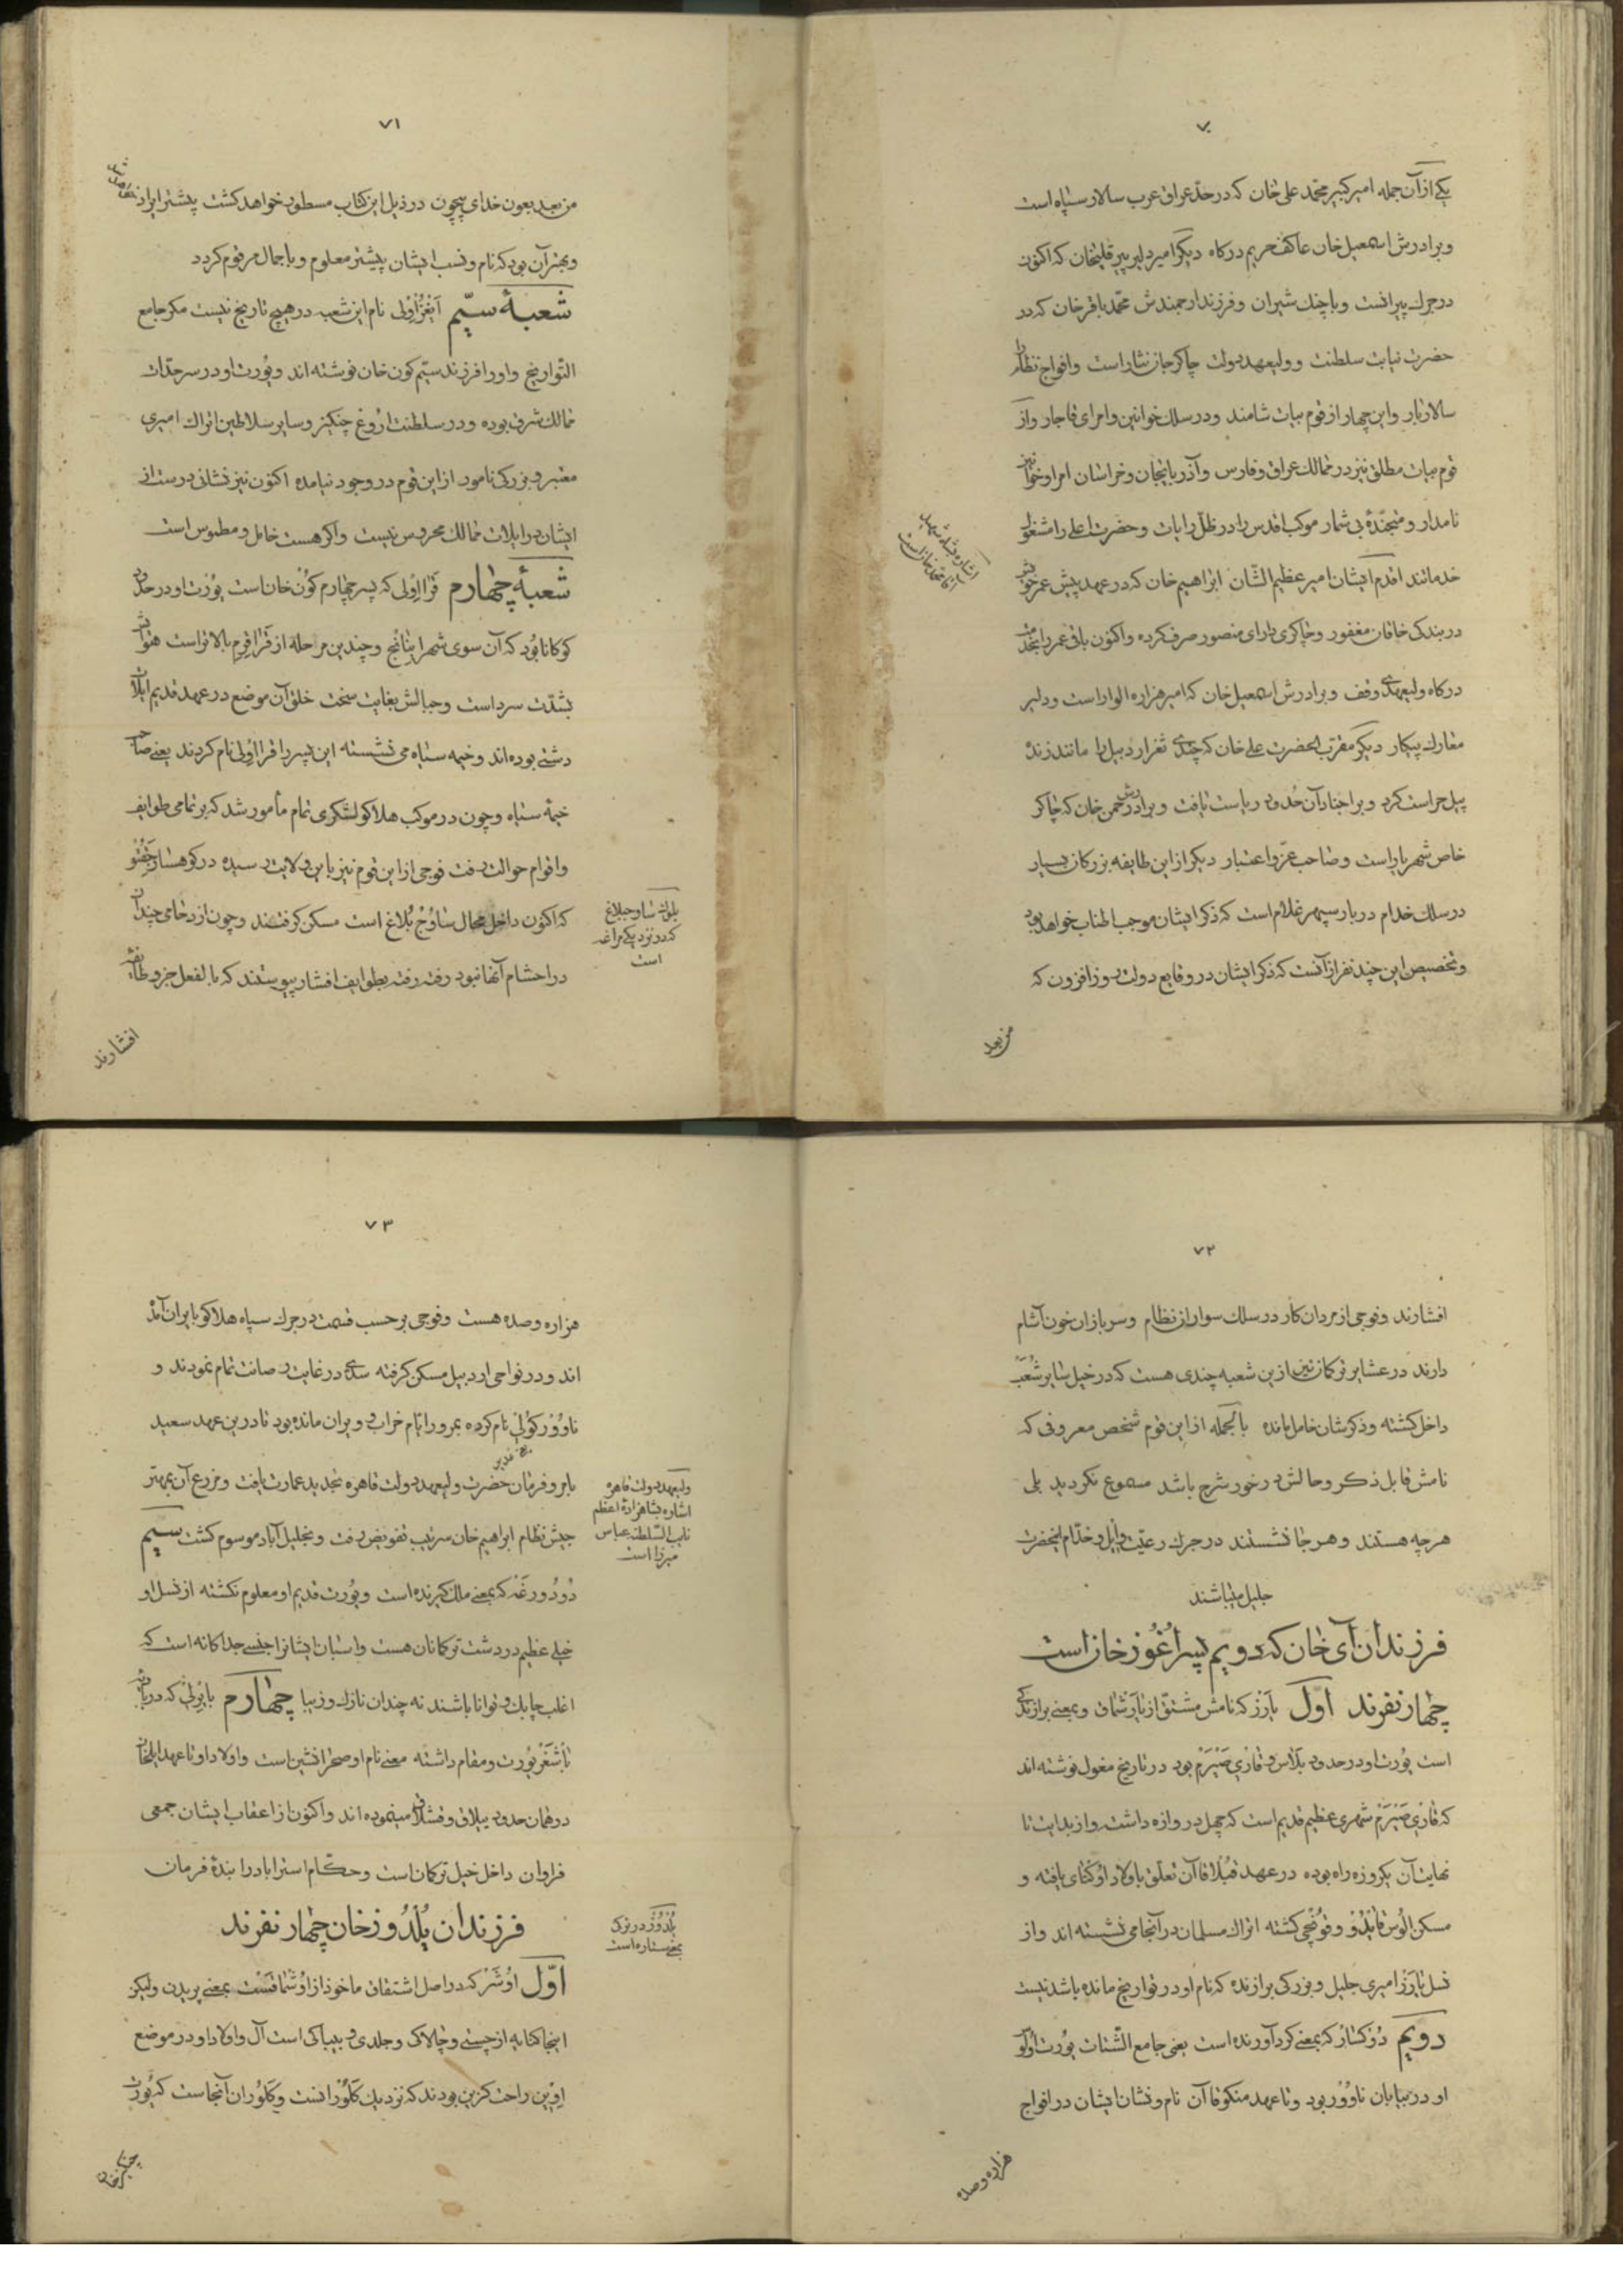 ۷۰
یکی از آن جمله امیر کبیر محمد علی خان که در حد عراق عرب سالار سپاه است
و برادرش اسمعیل خان عاکف حریم درکاه دیکر امیر دلیر پیرقلیخان که اکنون
در جرك پیر افست و با چنك شیران و فرزند ارجمندش محمد باقر خان که در
حضرت نیابت سلطنت و ولیعهد دولت چاکر جان نثار است و افواج نظام را
سالار بار و این چهار از قوم بیات شامند و در سلك خوانین و امرای قاجار و از
قوم بیات مطلق نیز در ممالك عراق و فارس و آذربایجان و خراسان امرا و خوانین
نامدار و منجنده بی شمار موکب اقدس را در ظل رایات و حضرت اعلی را مشغول
خدمانند اقدم ایشان امیر عظیم الشان ابراهیم خان که در عهد پیش عمر خویش
در بندکی خاقان مغفور و چاکری دارای منصور صرف کرده و اکنون باقی عمر را بخدمت
درکاه ولیعهدی وقف و برادرش اسمعیل خان که امیر هزاره الوار است و دلیر
معارك پیکار دیکر مقرب الحضرت علی خان که چندی ثغر اردبیل را مانند زنده
پیل حراست کرد و بر اجناد آن حدود ریاست یافت و برادرش رحمن خان که چاکر
خاص شهریار است و صاحب عز و اعتبار دیکر از این طایفه بزرکان بسیار
در سلك خدام دربار سپهر غلام است که ذکر ایشان موجب اطناب خواهد بود
و تخصیص این چند نفر از آنست که ذکر ایشان در وقایع دولت روز افزون که
من بعد
اشاره بشاه شهید
آقا محمد خان است
۷۱
من بعد بعون خدای بیچون در ذیل این کتاب مسطور خواهد کشت پیشتر ایراد
و بهتر آن بود که نام و نسب ایشان پیشتر معلوم و باجمال مرقوم کردد
شعبهٔ سیّم آیغراولی نام این شعب در هیچ تاریخ نیست مکر جامع
التواریخ و او را فرزند سیم کون خان نوشته اند و یورت او در سرحدات
ممالك شرق بوده و در سلطنت اروغ چنکیز و سایر سلاطین اتراك امیری
معتبر و بزرکی نامور از این قوم در وجود نیامده اکنون نیز نشانی درست از
ایشان در ایلات ممالك محروس نیست و اکر هست خامل و مطموس است
شعبهٔ چهارم قرااولی که پسر چهارم کون خان است یورت او در حدود
کوکانابود که آن سوی شهر اینانج و چندین مرحله از قراقرم بالاتر است هوایش
بشدت سرد است و جبالش بغایت سخت خلق آن موضع در عهد قدیم ایلات
دشتی بوده اند و خیمه سیاه می نشسته این پسر را قرااولی نام کردند یعنی صاحب
خیمهٔ سیاه و چون در موکب هلاکو لشکری تمام مأمور شد که بر تمامی طوایف
و اقوام حوالت رفت فوجی از این قوم نیز باین ولایت رسیده در کوهسار جغتو
که اکنون داخل محال ساوج بلاغ است مسکن کرفتند و چون ازدحامی چندان
در احشام آنها نبود رفته رفته بطوایف افشار پیوستند که بالفعل جزو طایفه
افشارند
بلوك ساوجبلاغ
که در نزدیکی مراغه
است
۷۲
افشارند و فوجی از مردان کار در سلك سواران نظام و سربازان خون آشام
دارند در عشایر ترکمان نیز از ین شعبه چندی هست که در خیل سایر شعب
داخل کشته و ذکرشان خامل مانده بالجمله از این قوم شخص معروفی که
نامش قابل ذکر و حالش در خور شرح باشد مسموع نکردید بلی
هر چه هستند و هر جا نشستند در جرك رعیت و ایل و خدام اینحضرت
جلیل میباشند
فرزندان آی خان که دویم پسر اغوز خان است
چهار نفرند اول یازر که نامش مشتق از یازشماق و بمعنی برازندکی
است یورت او در حدود بلاس و قازی صیرم بود در تاریخ مغول نوشته اند
که قازی صیرم شهری عظیم قدیم است که چهل دروازه داشت و از بدایت تا
نهایت آن یکروزه راه بوده در عهد قبلاقاآن تعلق باولاد اوکتای یافته و
مسکن الوس قایدو و قونچی کشته اتراك مسلمان در آنجا می نشسته اند و از
نسل یازر امیری جلیل و بزرکی برازنده که نام او در تواریخ مانده باشد نیست
دویم دوکار که بمعنی کرد آورنده است یعنی جامع الشتات یورت اولاد
او در بیابان ناوور بود و تا عهد منکوقاآن نام و نشان ایشان در افواج
هزاره و صده
۷۳
هزاره و صده هست و فوجی بر حسب قسمت در جرك سپاه هلاکو بایران آمده
اند و در نواحی اردبیل مسکن کرفته سدی در غایت رصانت تمام نمودند و
ناوورکولی نام کرده بمرور ایام خراب و ویران مانده بود تا در ین عهد سعید
بامر و فرمان حضرت ولیعهد دولت قاهره تجدید عمارت یافت و مزرع آن بمهتر
جیش نظام ابراهیم خان سرتیب تفویض رفت و بخلیل آباد موسوم کشت سیم
دودورغه که بمعنی ملك کیرنده است و یورت قدیم او معلوم نکشته از نسل او
خیلی عظیم در دشت ترکمانان هست و اسبان ایشانرا جنسی جداکانه است که
اغلب چابك و توانا باشند نه چندان نازك و زیبا چهارم یاپرلی که در یازده
باشغر یورت و مقام داشته معنی نام او صحرانشین است و اولاد او تا عهد ایلخان
در همان حدود ییلاق و قشلاق مینموده اند و اکنون از اعقاب ایشان جمعی
فراوان داخل خیل ترکمان است و حکام استراباد را بندهٔ فرمان
فرزندان یلدوز خان چهار نفرند
اوّل اوشر که در اصل اشتقاق ماخوذ از اوشماقست بمعنی پریدن و لیکن
اینجا کنایه از چستی و چالاکی و جلدی و بیباکی است آل و اولاد او در موضع
اوین راحت کزین بودند که نزدیك کلورانست و کلوران آنجاست که یورت
چنکیز خان
ولیعهد دولت قاهره
اشاره بشاهزادهٔ اعظم
نایب السلطنه عباس
میرزا است
یلدوز در ترکی
بمعنی ستاره است